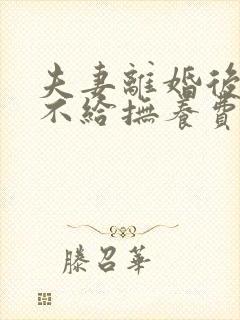 夫妻離婚後
不給撫養費
滕召華